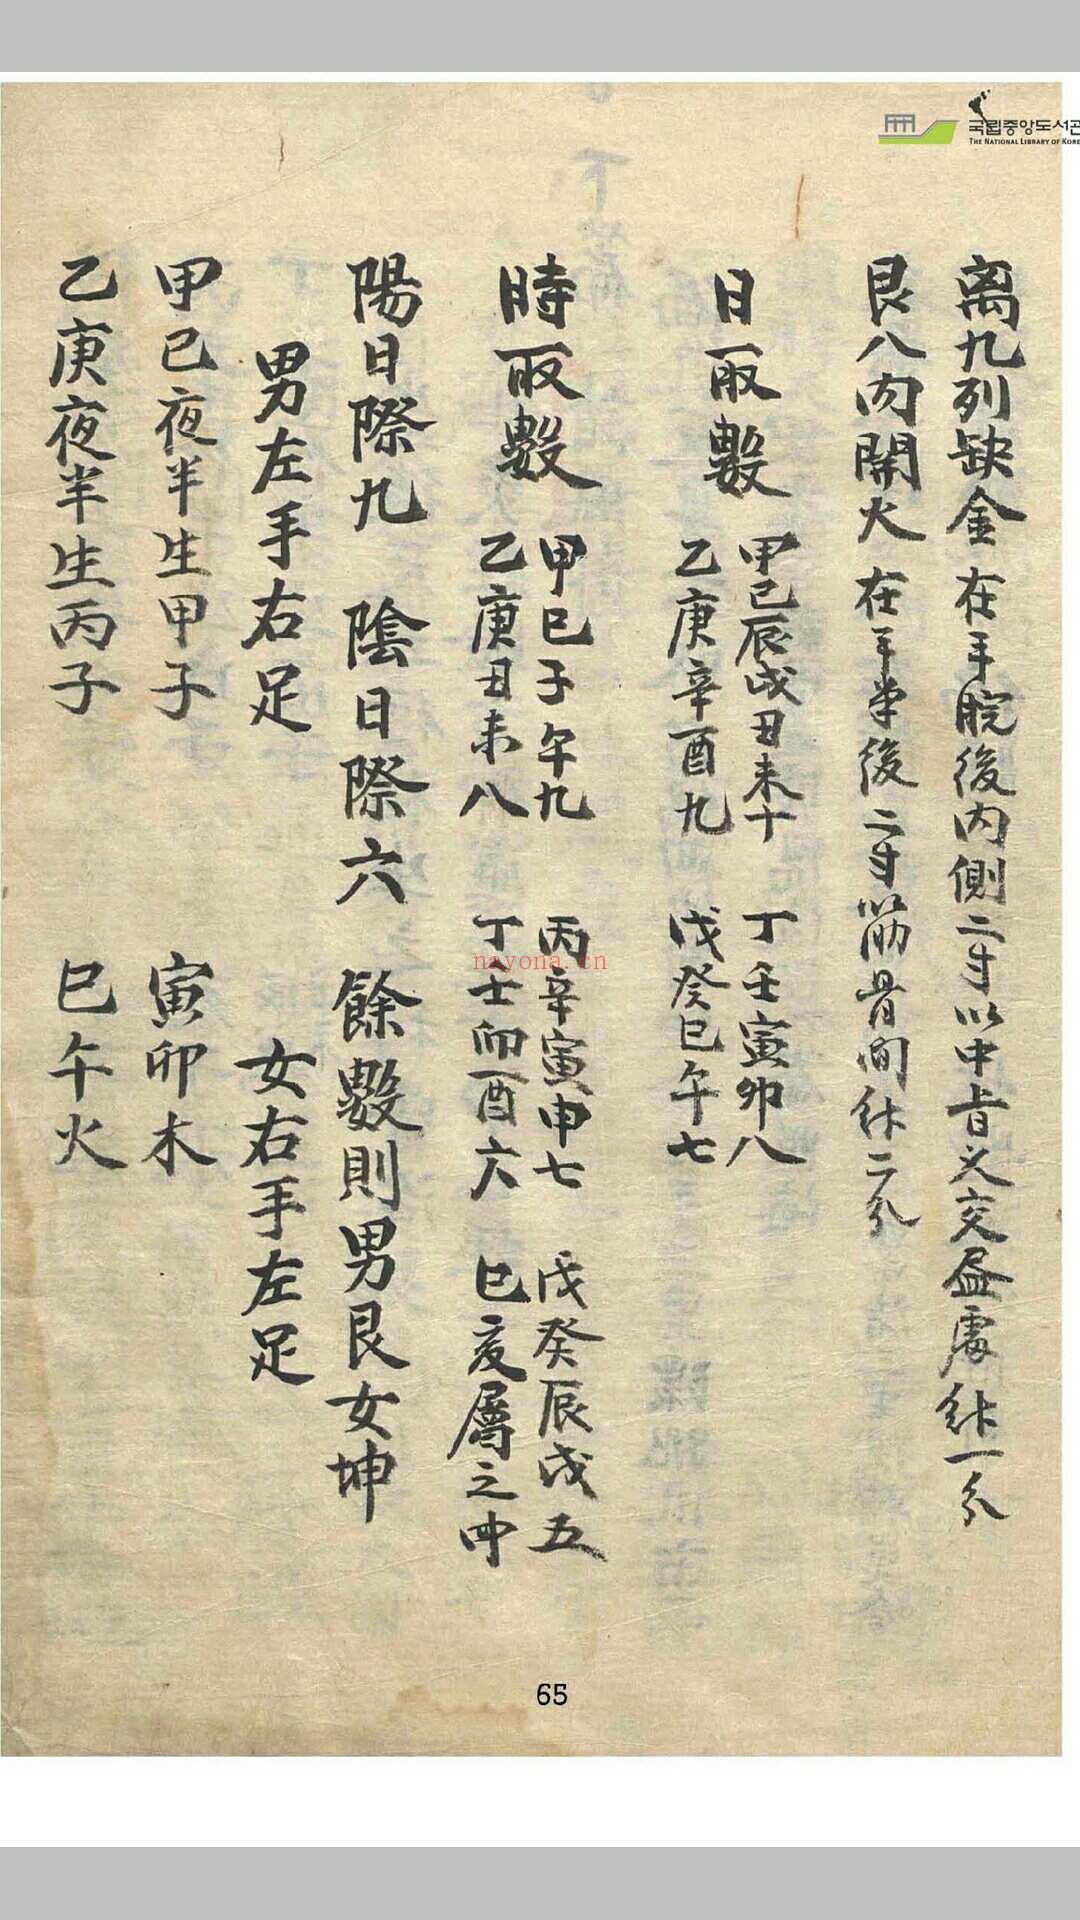 국립중앙도서관
THE NATIONAL LIBRARY OF KORE
离九列缺金 在手腕後内側二寸以中指乂交盡處針一分
艮八内關火 在手掌後二寸筋骨间針二分
日取數
甲己辰戌丑未十 丁壬寅卯八
乙庚辛酉九 戊癸巳午七
時取數
甲己子午九 丙辛寅申七 戊癸辰戌五
乙庚丑未八 丁壬卯酉六 巳亥屬之四
陽日際九 陰日際六 餘數則男艮女坤
男左手右足 女右手左足
甲己夜半生甲子 寅卯木
乙庚夜半生丙子 巳午火
nayona.cn
65